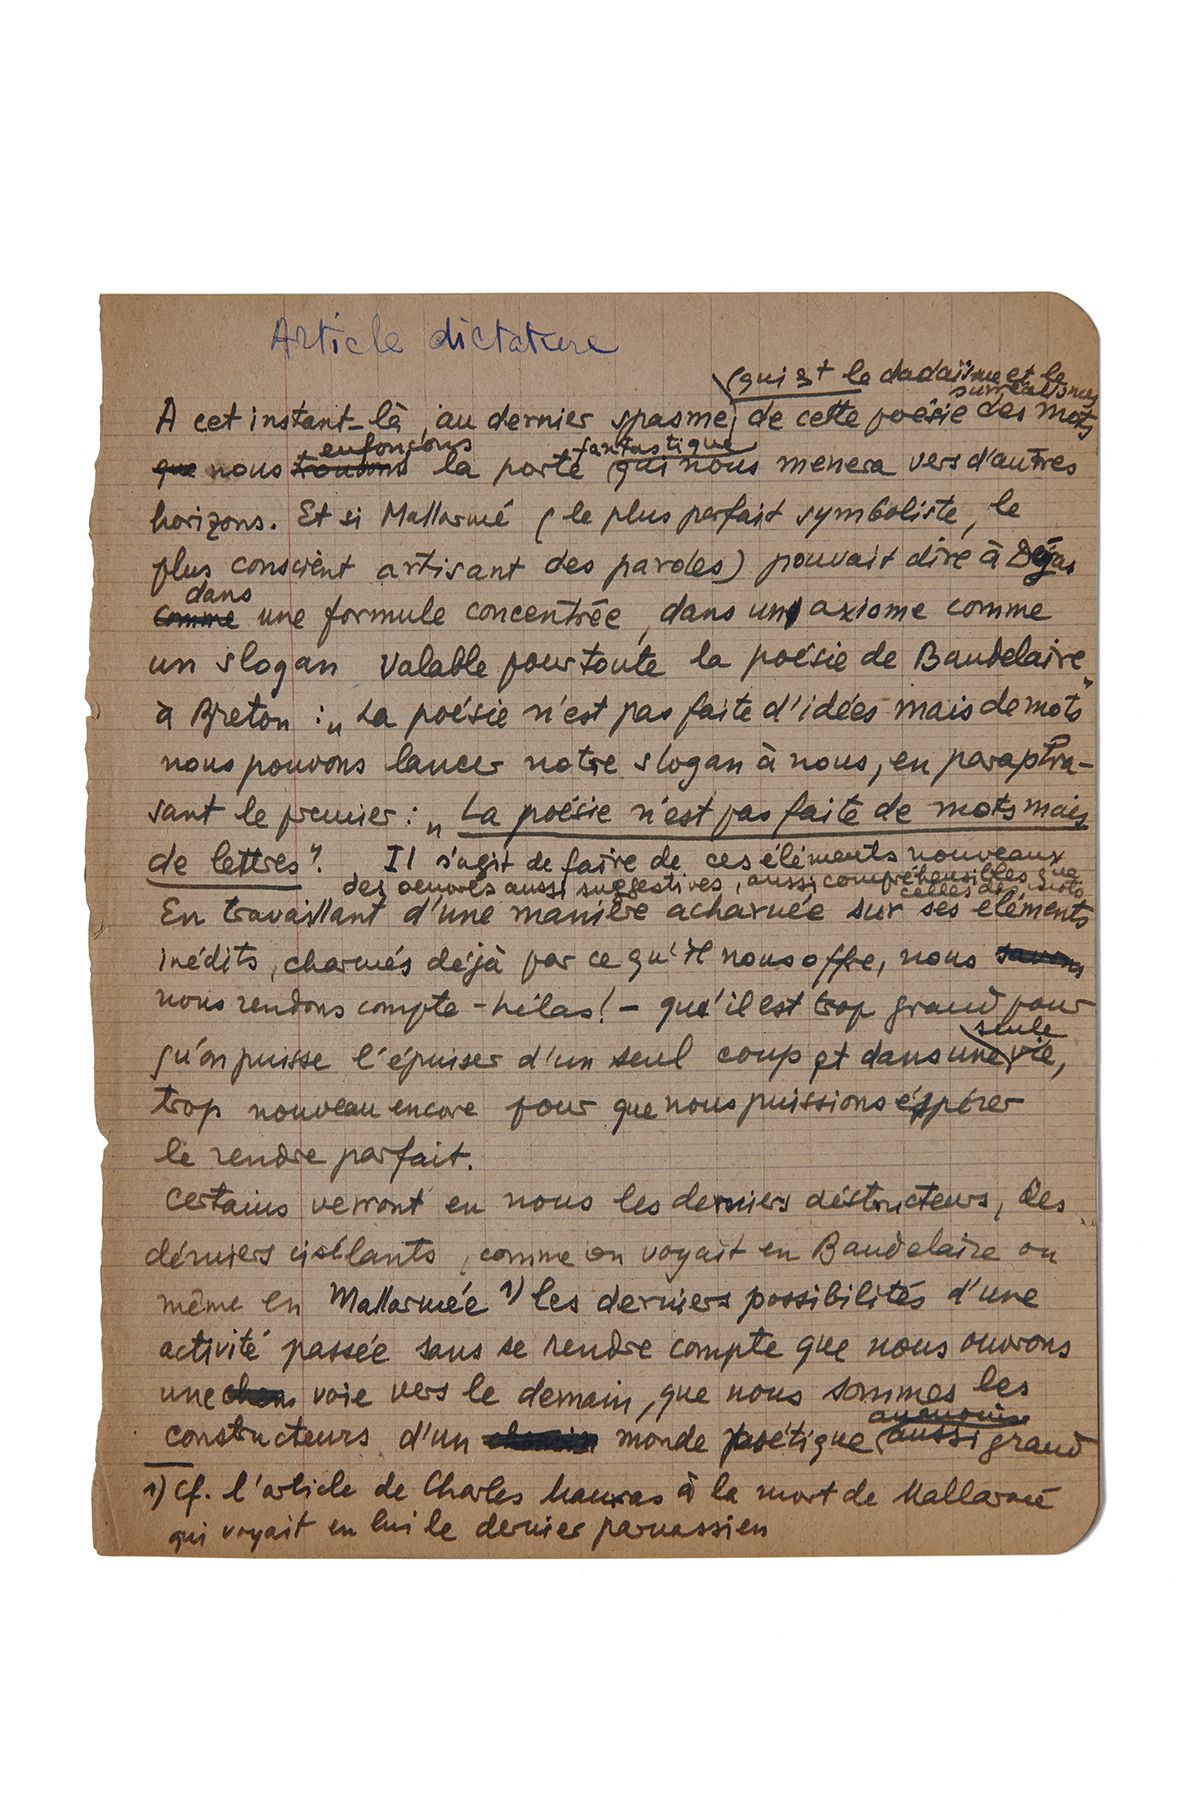 Article dictature
(qui est le dadaïsme et le
surréalisme
A cet instant-là, au dernier spasme, de cette poésie des mots
enfonçons fantastique
que nous trouvons la porte qui nous menera vers d'autres
horizons. Et si Mallarmé (le plus parfait symboliste, le
plus conscient artisant des paroles) pouvait dire à Dégas
dans
comme une formule concentrée, dans un axiome comme
un slogan valable pour toute la poésie de Baudelaire
à Breton : „La poésie n'est pas faite d'idées mais de mots"
nous pouvons lancer notre slogan à nous, en paraphra-
sant le premier : „La poésie n'est pas faite de mots mais
de lettres". Il s'agit de faire de ces éléments nouveaux
des oeuvres aussi suggestives, aussi compréhensibles que
celles des mots
En travaillant d'une manière acharnée sur ses éléments
inédits, charmés déjà par ce qu'il nous offre, nous savons
nous rendons compte - hélas! - qu'il est trop grand pour
seule
qu'on puisse l'épuiser d'un seul coup et dans une vie,
trop nouveau encore pour que nous puissions éspérer
le rendre parfait.
Certains verront en nous les derniers déstructeurs, les
dérniers cisélants, comme on voyait en Baudelaire ou
même en Mallarmée 1) les derniers possibilités d'une
activité passée sans se rendre compte que nous ouvrons
une voie vers le demain, que nous sommes les
au moins
constructeurs d'un chemin monde poétique (aussi grand
1) Cf. l'article de Charles Maurras à la mort de Mallarmé
qui voyait en lui le dernier parnassien